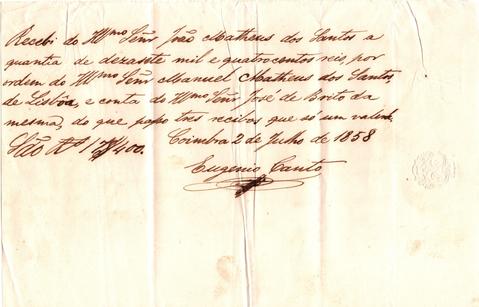 Recebi do Illmo Señr João Matheus dos Santos a
quantia de dezasete mil e quatrocentos reis, por
ordem do Illmo Señr Manuel Matheus dos Santos,
de Lisbôa, e conta do Illmo Señr José de Brito da
mesma, do que passo tres recibos que só um valerá.
São Rs 17$400. Coimbra 2 de Julho de 1858
Eugenio Canto